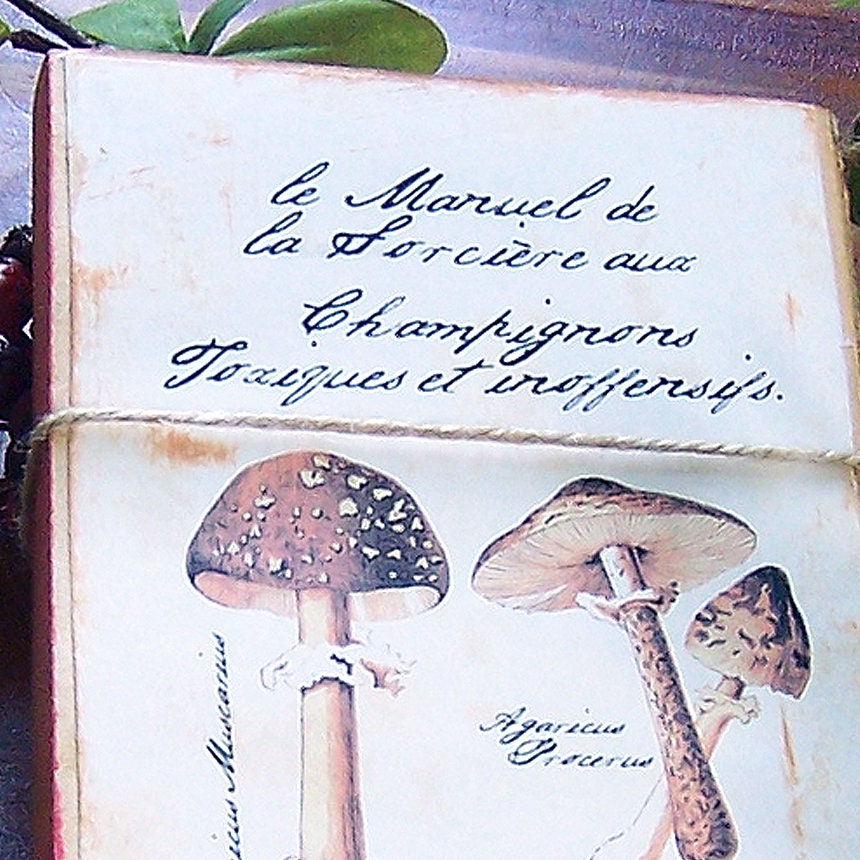 le Manuel de
la Sorcière aux
Champignons
Toxiques et inoffensifs.
Agaricus
Procerus
Muscarius